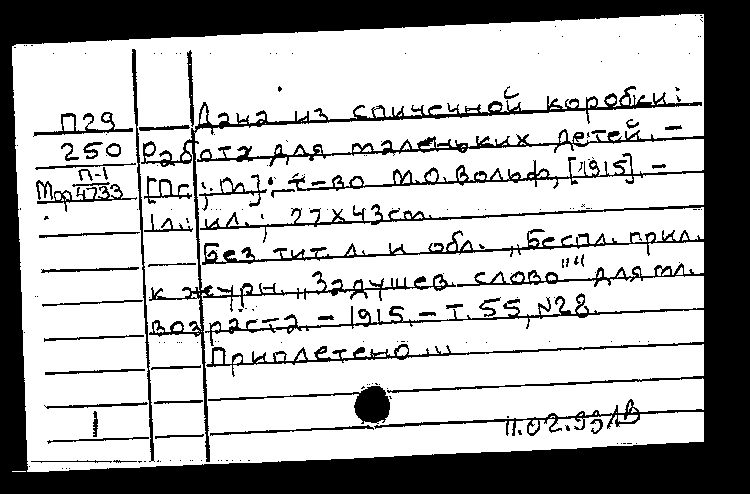 П29 Дача из спичечной коробки:
250 Работа для маленьких детей. –
П-1
Мор 4733 [Пг.; М.]: т-во М.О. Вольф, [1915]. –
1 л.: ил.; 27х43 cm.
Без тит. л. и обл. „Беспл. прил.
к журн. „Задушев. слово"" для мл.
возраста. – 1915. – Т. 55, N28.
Приплетено ...
1
11.02.99 ЛВ